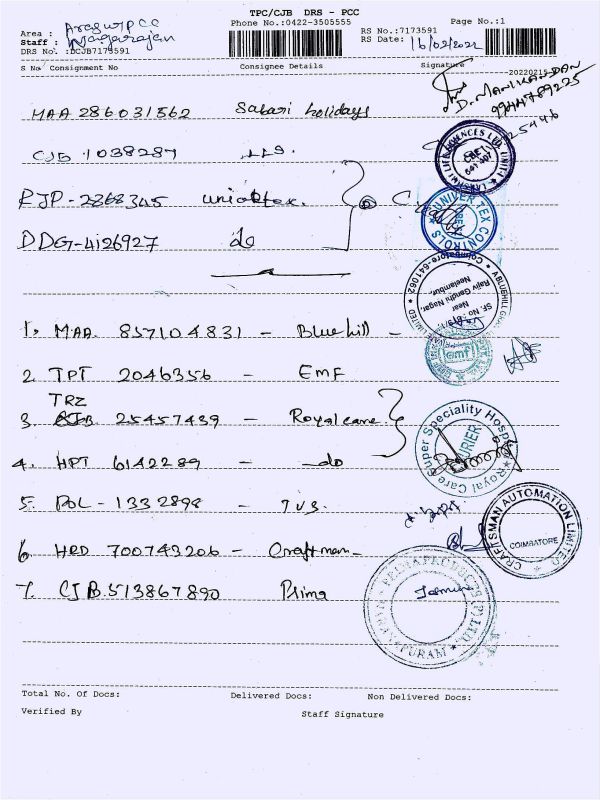 TPC/CJB DRS - PCC
Phone No.:0422-3505555
Page No.:1
Area :
Staff : Nagarajan
DRS No. :DCJB7173591
RS No.:7173591
RS Date: 16/02/2022
S No Consignment No Consignee Details Signature 20220219
D. MANIKANDAN
MAA 286031562 Sabari holidays
CJB 1038287
RJP-2868345
DDG-4126927 do
1. MAA. 857104831 - Bluehill -
2. TPT 2046356 - EMF
TRZ
3. 25457439 - Royalcare
4. HPT 6142289 - do
5. POL-1332898 - TVS.
6. HRD 700743206 - Craftman-
7. CJB.513867890 Prima
UNIVER TEX CONTROLS
ABLUEHILL
SF. No:
Near
Rajiv Gandhi Nagar,
Neelambur,
Coimbatore-641062
emf
Royal Care Super Speciality Hospital
COURIER
CRAFTSMAN AUTOMATION LIMITED
COIMBATORE
Total No. Of Docs: Delivered Docs: Non Delivered Docs:
Verified By Staff Signature